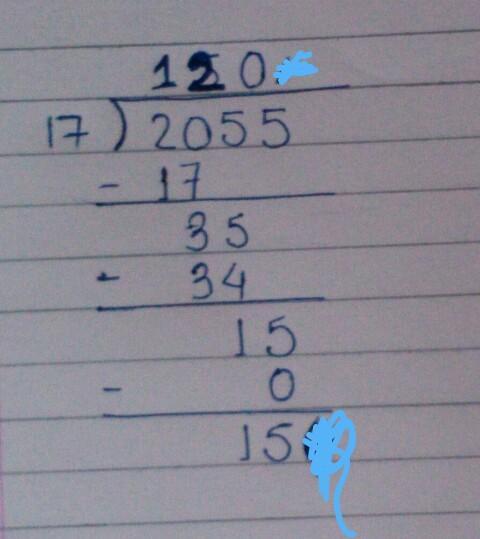 120
17 ) 2055
- 17
35
- 34
15
- 0
15